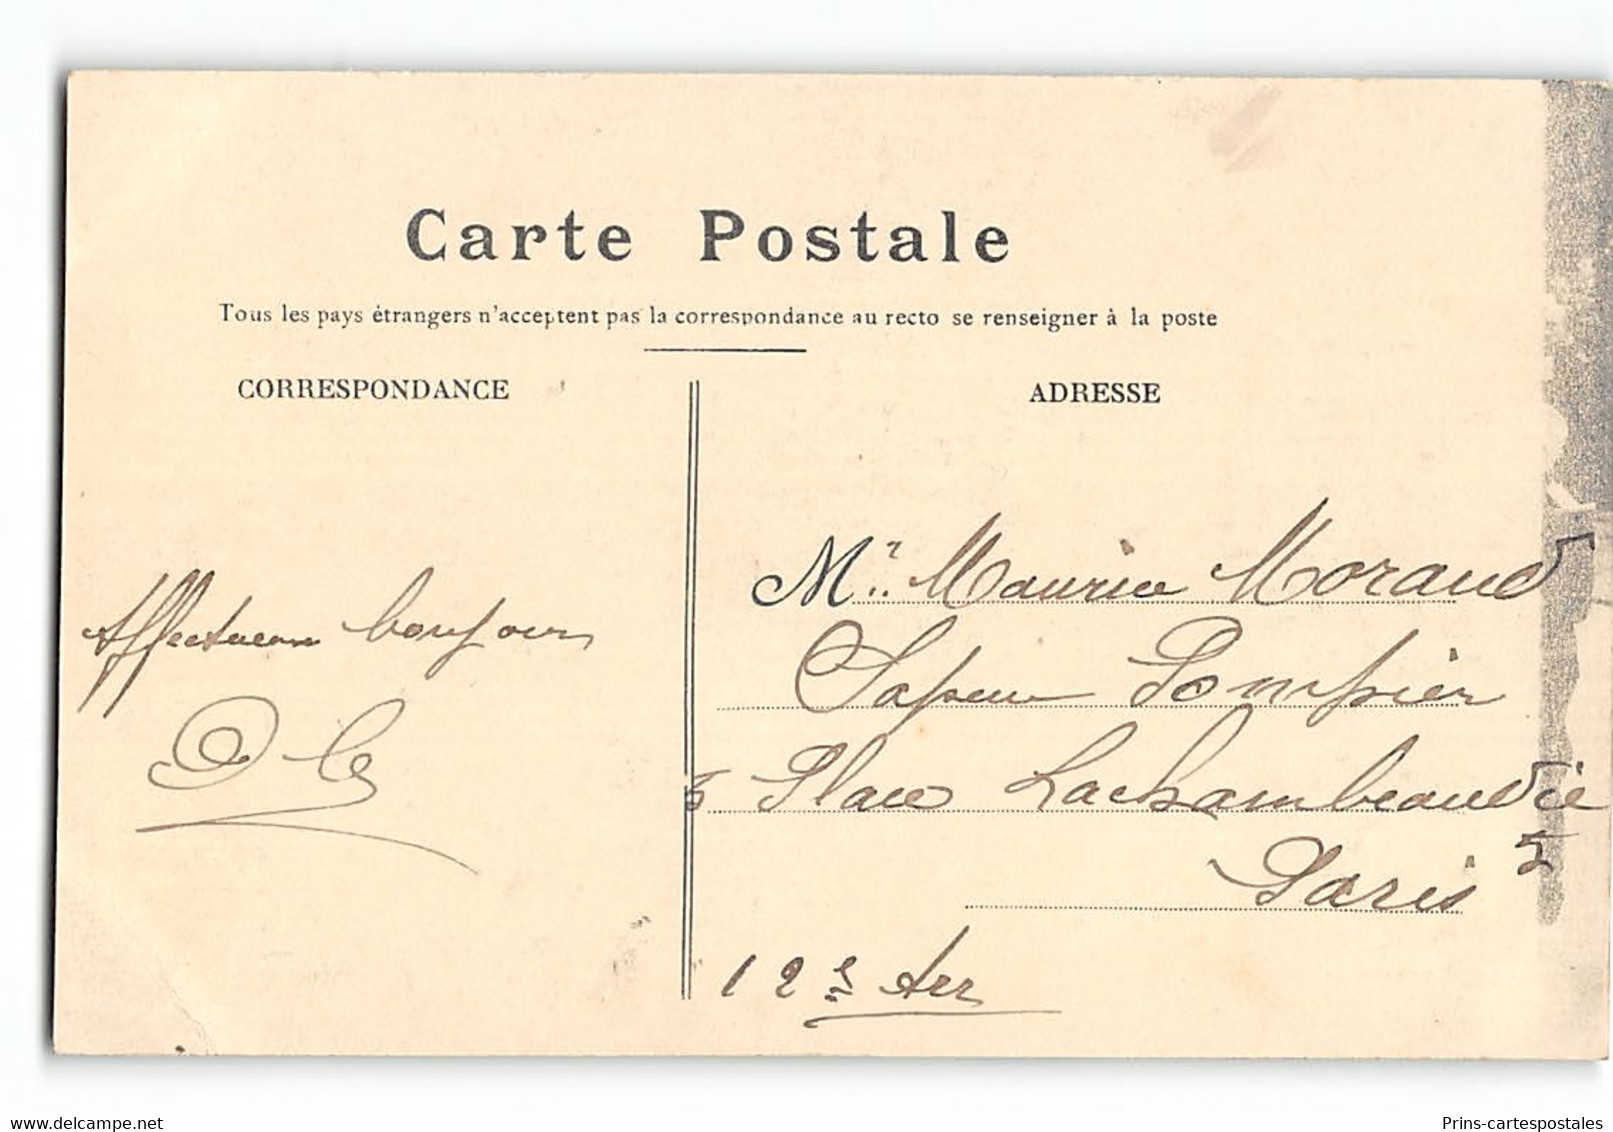 Carte Postale
Tous les pays étrangers n'acceptent pas la correspondance au recto se renseigner à la poste
CORRESPONDANCE
ADRESSE
Affectueux bonjour
Mr. Maurice Morand
Sapeur Pompier
Place Lachambeaudie
Paris
12e Arr
www.delcampe.net
Prins-cartespostales